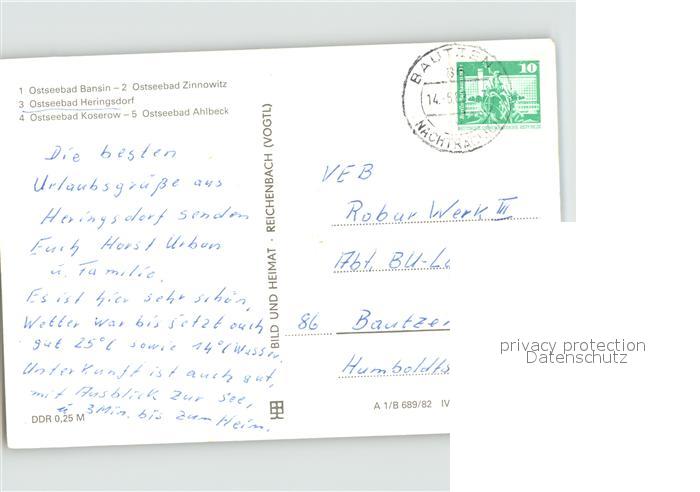 1 Ostseebad Bansin – 2 Ostseebad Zinnowitz
3 Ostseebad Heringsdorf
4 Ostseebad Koserow – 5 Ostseebad Ahlbeck
Die besten
Urlaubsgrüße aus
Heringsdorf senden
Euch Horst Urban
u. Familie.
Es ist hier sehr schön,
Wetter war bis jetzt auch
gut 25°C sowie 14°C Wasser.
Unterkunft ist auch gut,
mit Ausblick zur See,
u 3 Min. bis zum Heim.
DDR 0,25 M
BILD UND HEIMAT · REICHENBACH (VOGTL)
BAUTZEN
14.5.
10
VEB
Robur Werk III
Abt. BU-L
86 Bautze
Humboldts
A 1/B 689/82 IV
privacy protection
Datenschutz